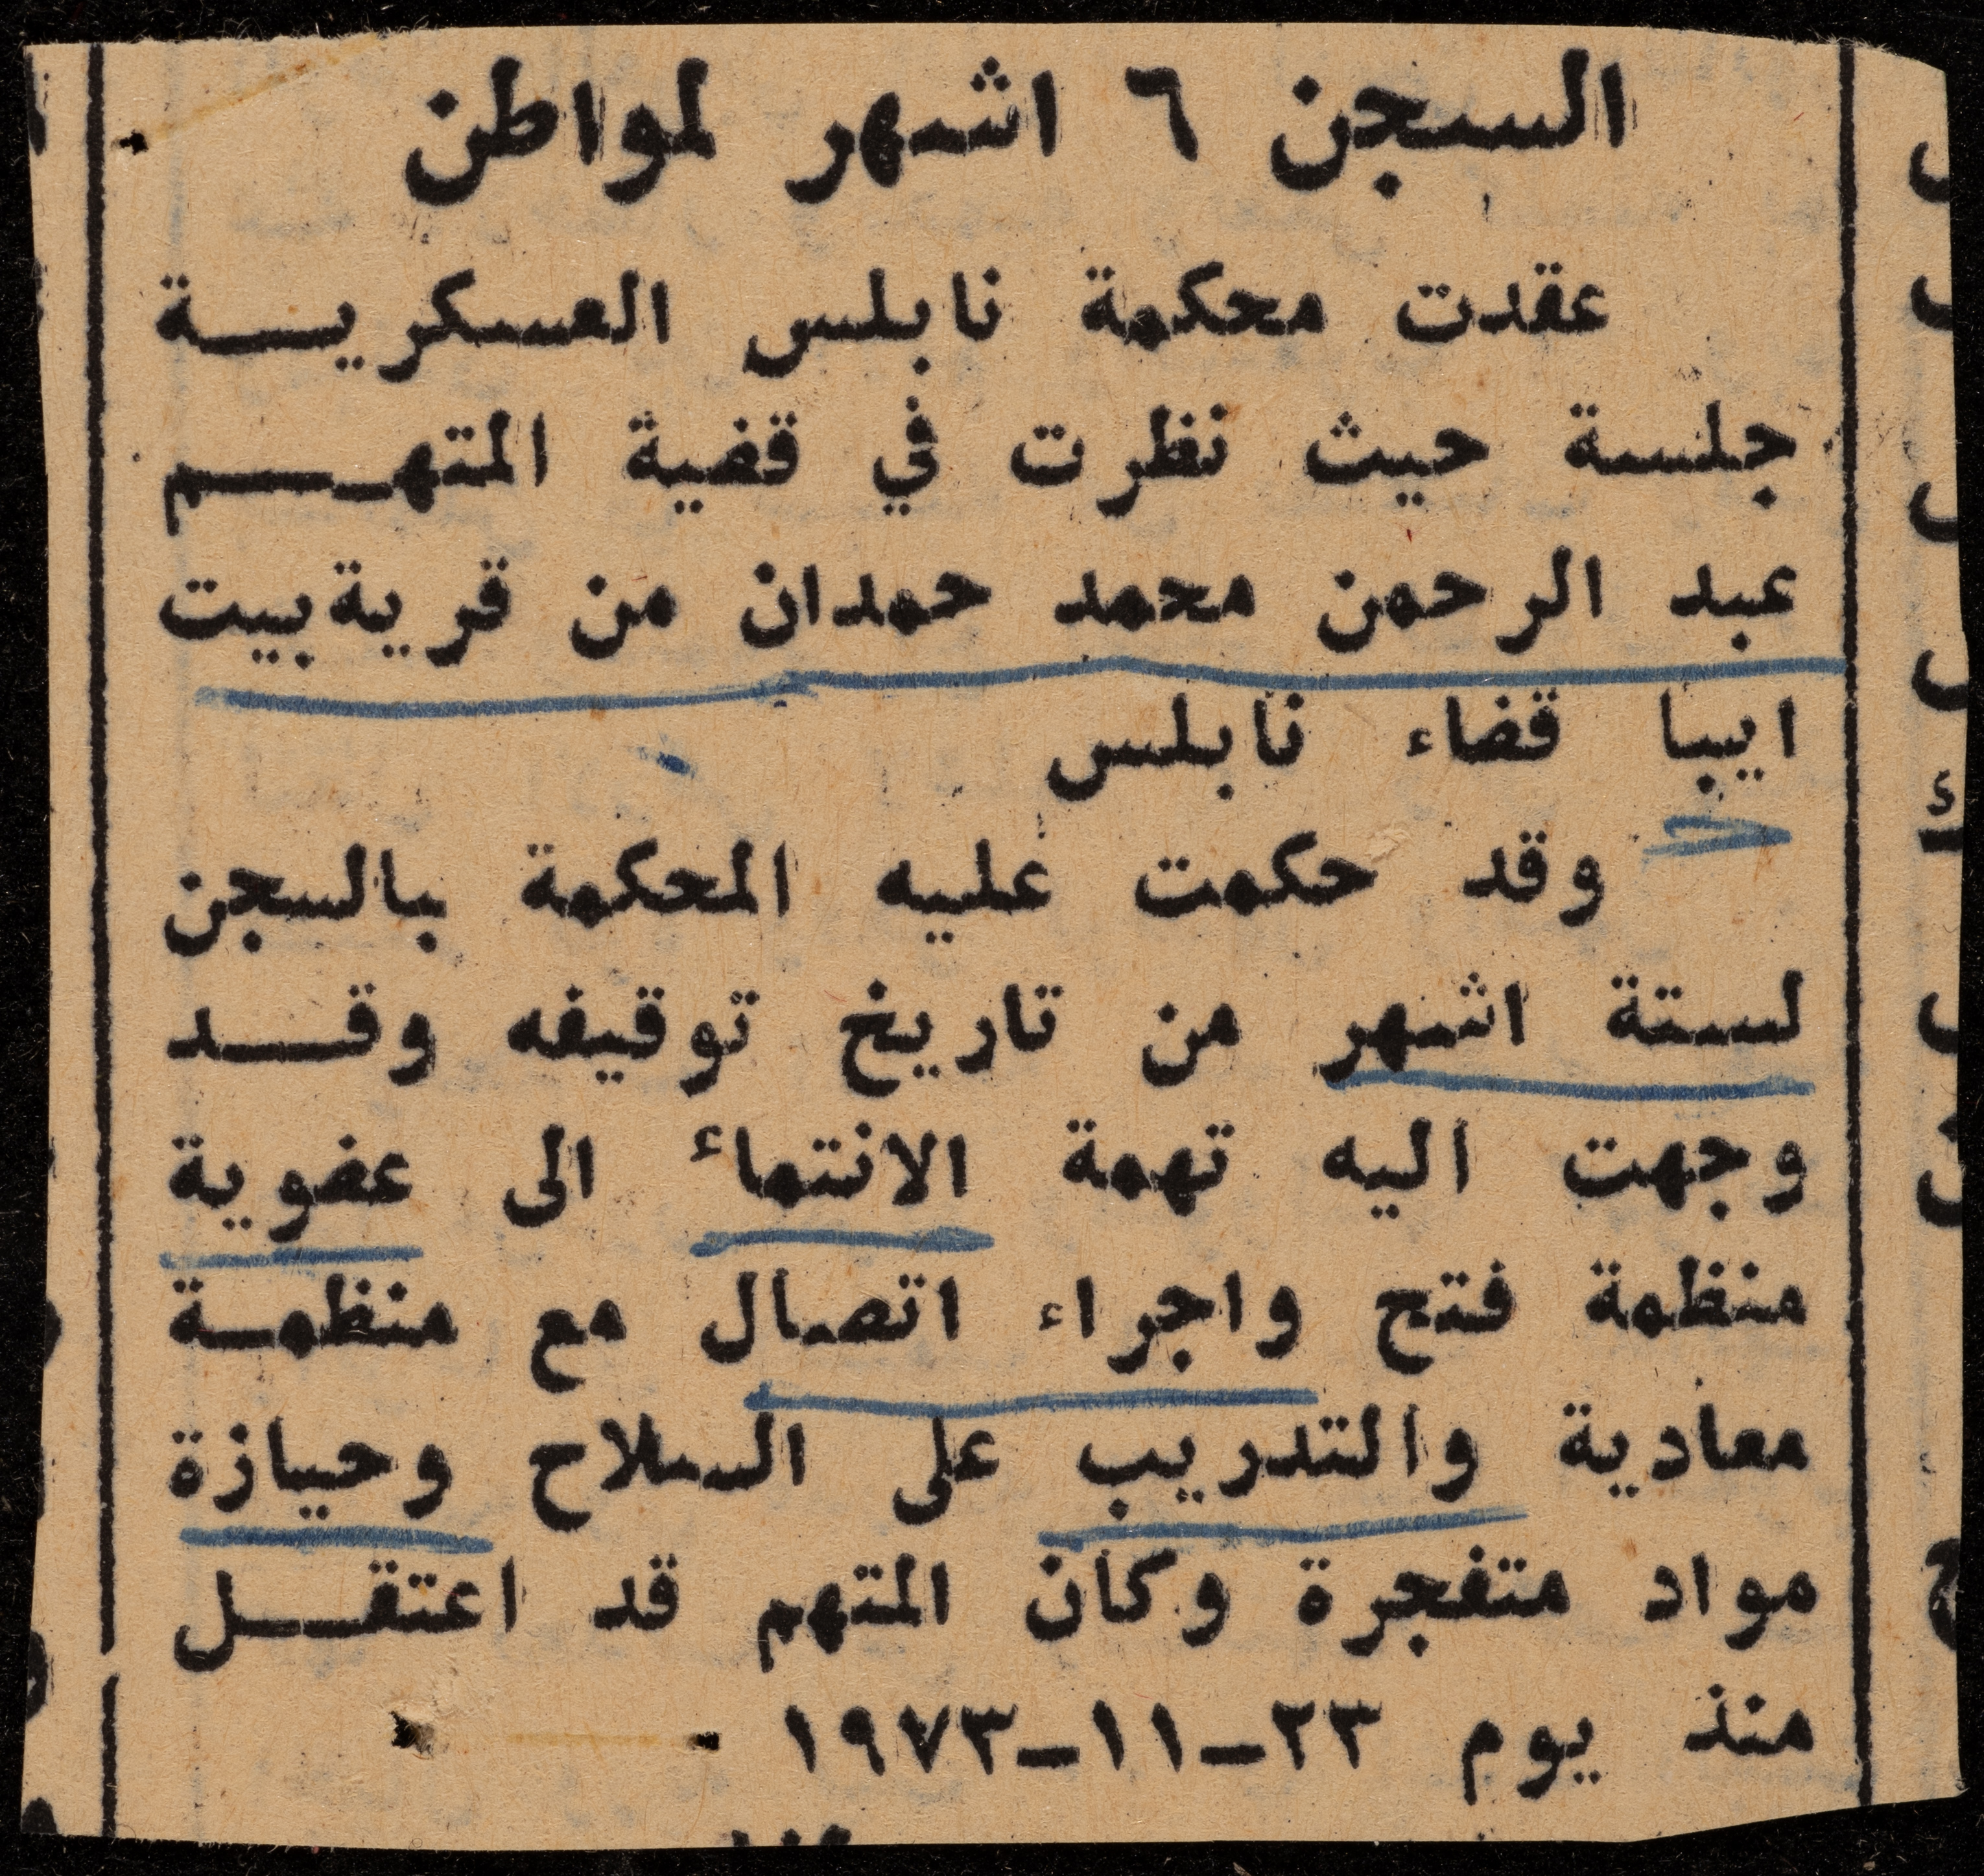 السجن ٦ اشهر لمواطن
عقدت محكمة نابلس العسكرية
جلسة حيث نظرت في قضية المتهم
عبد الرحمن محمد حمدان من قرية بيت
ايبا قضاء نابلس
وقد حكمت عليه المحكمة بالسجن
لستة اشهر من تاريخ توقيفه وقد
وجهت اليه تهمة الانتماء الى عضوية
منظمة فتح واجراء اتصال مع منظمة
معادية والتدريب على السلاح وحيازة
مواد متفجرة وكان المتهم قد اعتقل
منذ يوم ٢٣-١١-١٩٧٣